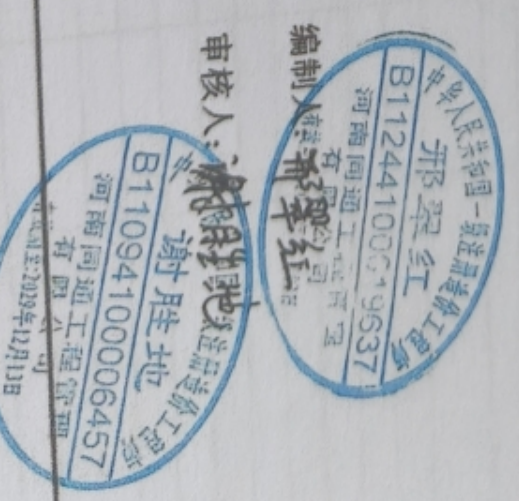 编制人:
中华人民共和国一级注册造价工程师
邢翠红
B11244100019637
河南同通工程管理
有限公司
审核人:
谢胜地
中 级注册造价工程师
谢胜地
B11094100006457
河南同通工程管理
有限公司
2029年12月13日